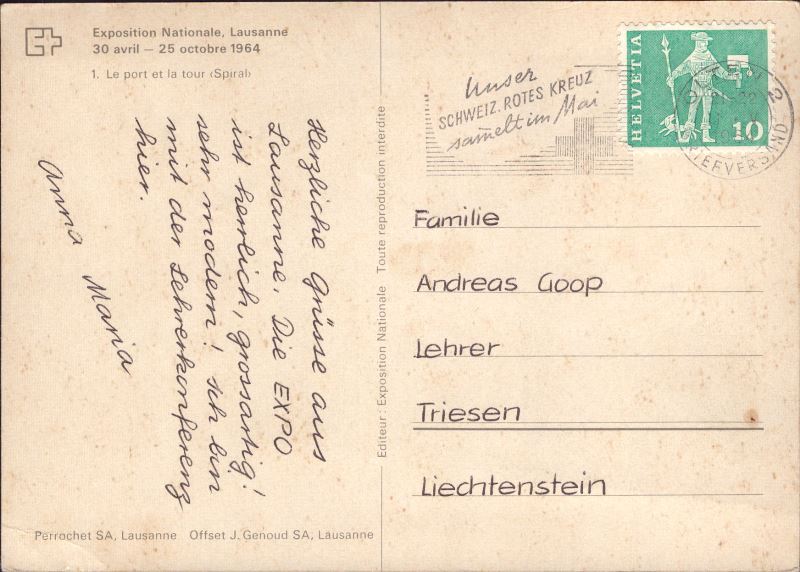 Exposition Nationale, Lausanne
30 avril — 25 octobre 1964
1. Le port et la tour ‹Spiral›
Herzliche Grüsse aus
Lausanne. Die EXPO
ist herrlich, grossartig!
sehr modern! Ich bin
mit der Lehrerkonferenz
hier.
Anna Maria
Perrochet SA, Lausanne Offset J. Genoud SA, Lausanne
Editeur: Exposition Nationale Toute reproduction interdite
Unser
SCHWEIZ. ROTES KREUZ
sammelt im Mai
HELVETIA
10
2
BRIEFVERSAND
Familie
Andreas Goop
Lehrer
Triesen
Liechtenstein